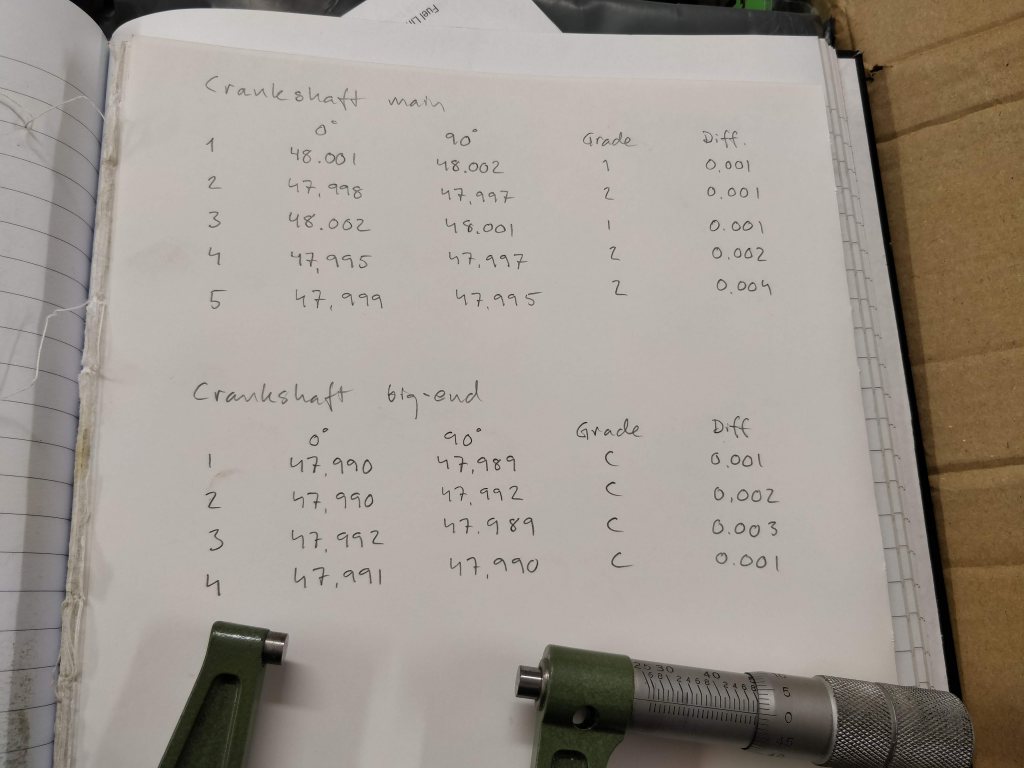 Fuel Li
Crankshaft main
0° 90° Grade Diff.
1 48.001 48.002 1 0.001
2 47,998 47,997 2 0.001
3 48.002 48.001 1 0.001
4 47,995 47,997 2 0.002
5 47,999 47,995 2 0.004
Crankshaft big-end
0° 90° Grade Diff
1 47,990 47,989 C 0.001
2 47,990 47,992 C 0,002
3 47,992 47.989 C 0.003
4 47,991 47,990 C 0.001
25 30 40
5
0
45